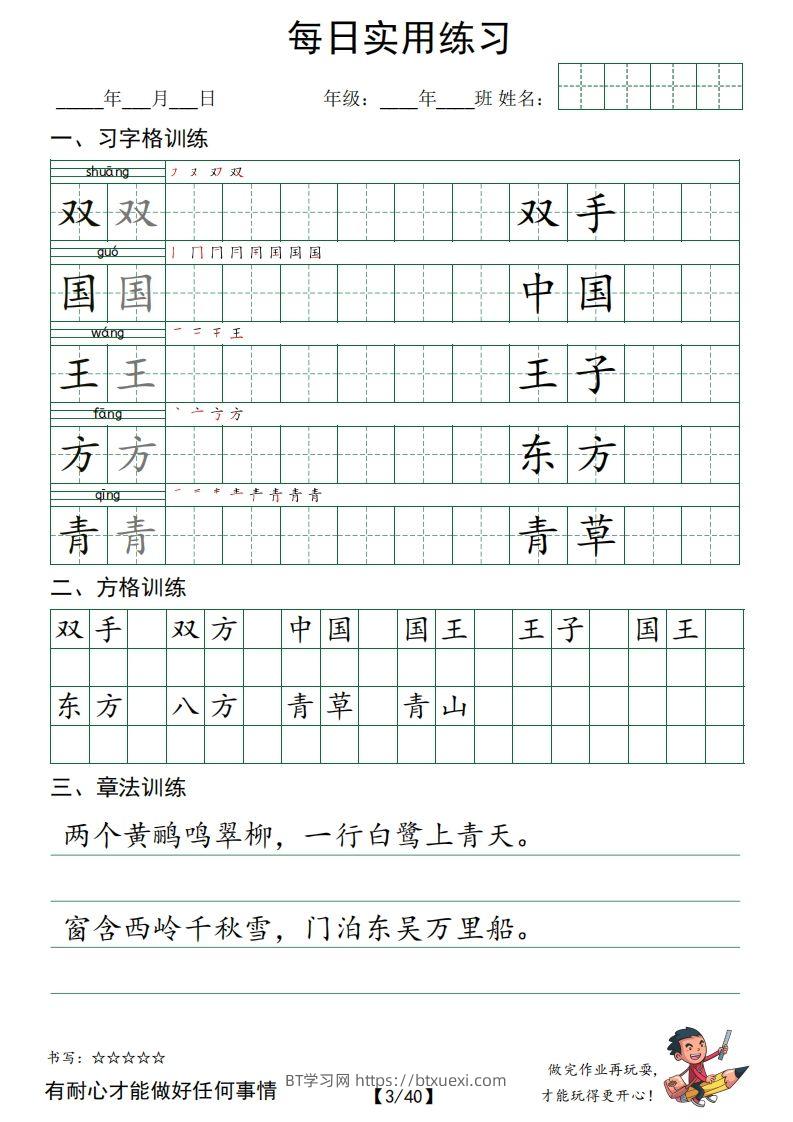 每日实用练习
_____年___月___日 年级：____年____班 姓名：
一、习字格训练
shuāng
双 双 双 手
guó
国 国 中 国
wáng
王 王 王 子
fāng
方 方 东 方
qīng
青 青 青 草
二、方格训练
双 手 双 方 中 国 国 王 王 子 国 王
东 方 八 方 青 草 青 山
三、章法训练
两个黄鹂鸣翠柳，一行白鹭上青天。
窗含西岭千秋雪，门泊东吴万里船。
书写：☆☆☆☆☆
有耐心才能做好任何事情
BT学习网 https://btxuexi.com
【3/40】
做完作业再玩耍，
才能玩得更开心！